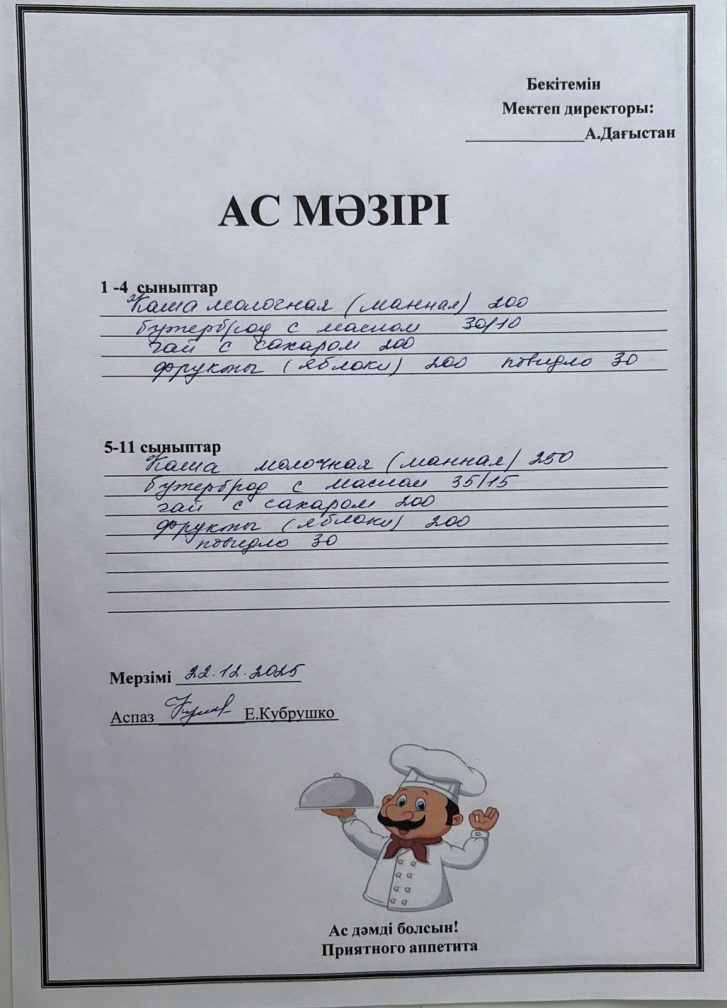 Бекітемін
Мектеп директоры:
А.Дағыстан
АС МӘЗІРІ
1 -4 сыныптар
Каша молочная (манная) 200
бутерброд с маслом 30/10
чай с сахаром 200
фрукты (яблоки) 200 повидло 30
5-11 сыныптар
Каша молочная (манная) 250
бутерброд с маслом 35/15
чай с сахаром 200
фрукты (яблоки) 200
повидло 30
Мерзімі 22.12.2025
Аспаз Е.Кубрушко
Ас дәмді болсын!
Приятного аппетита